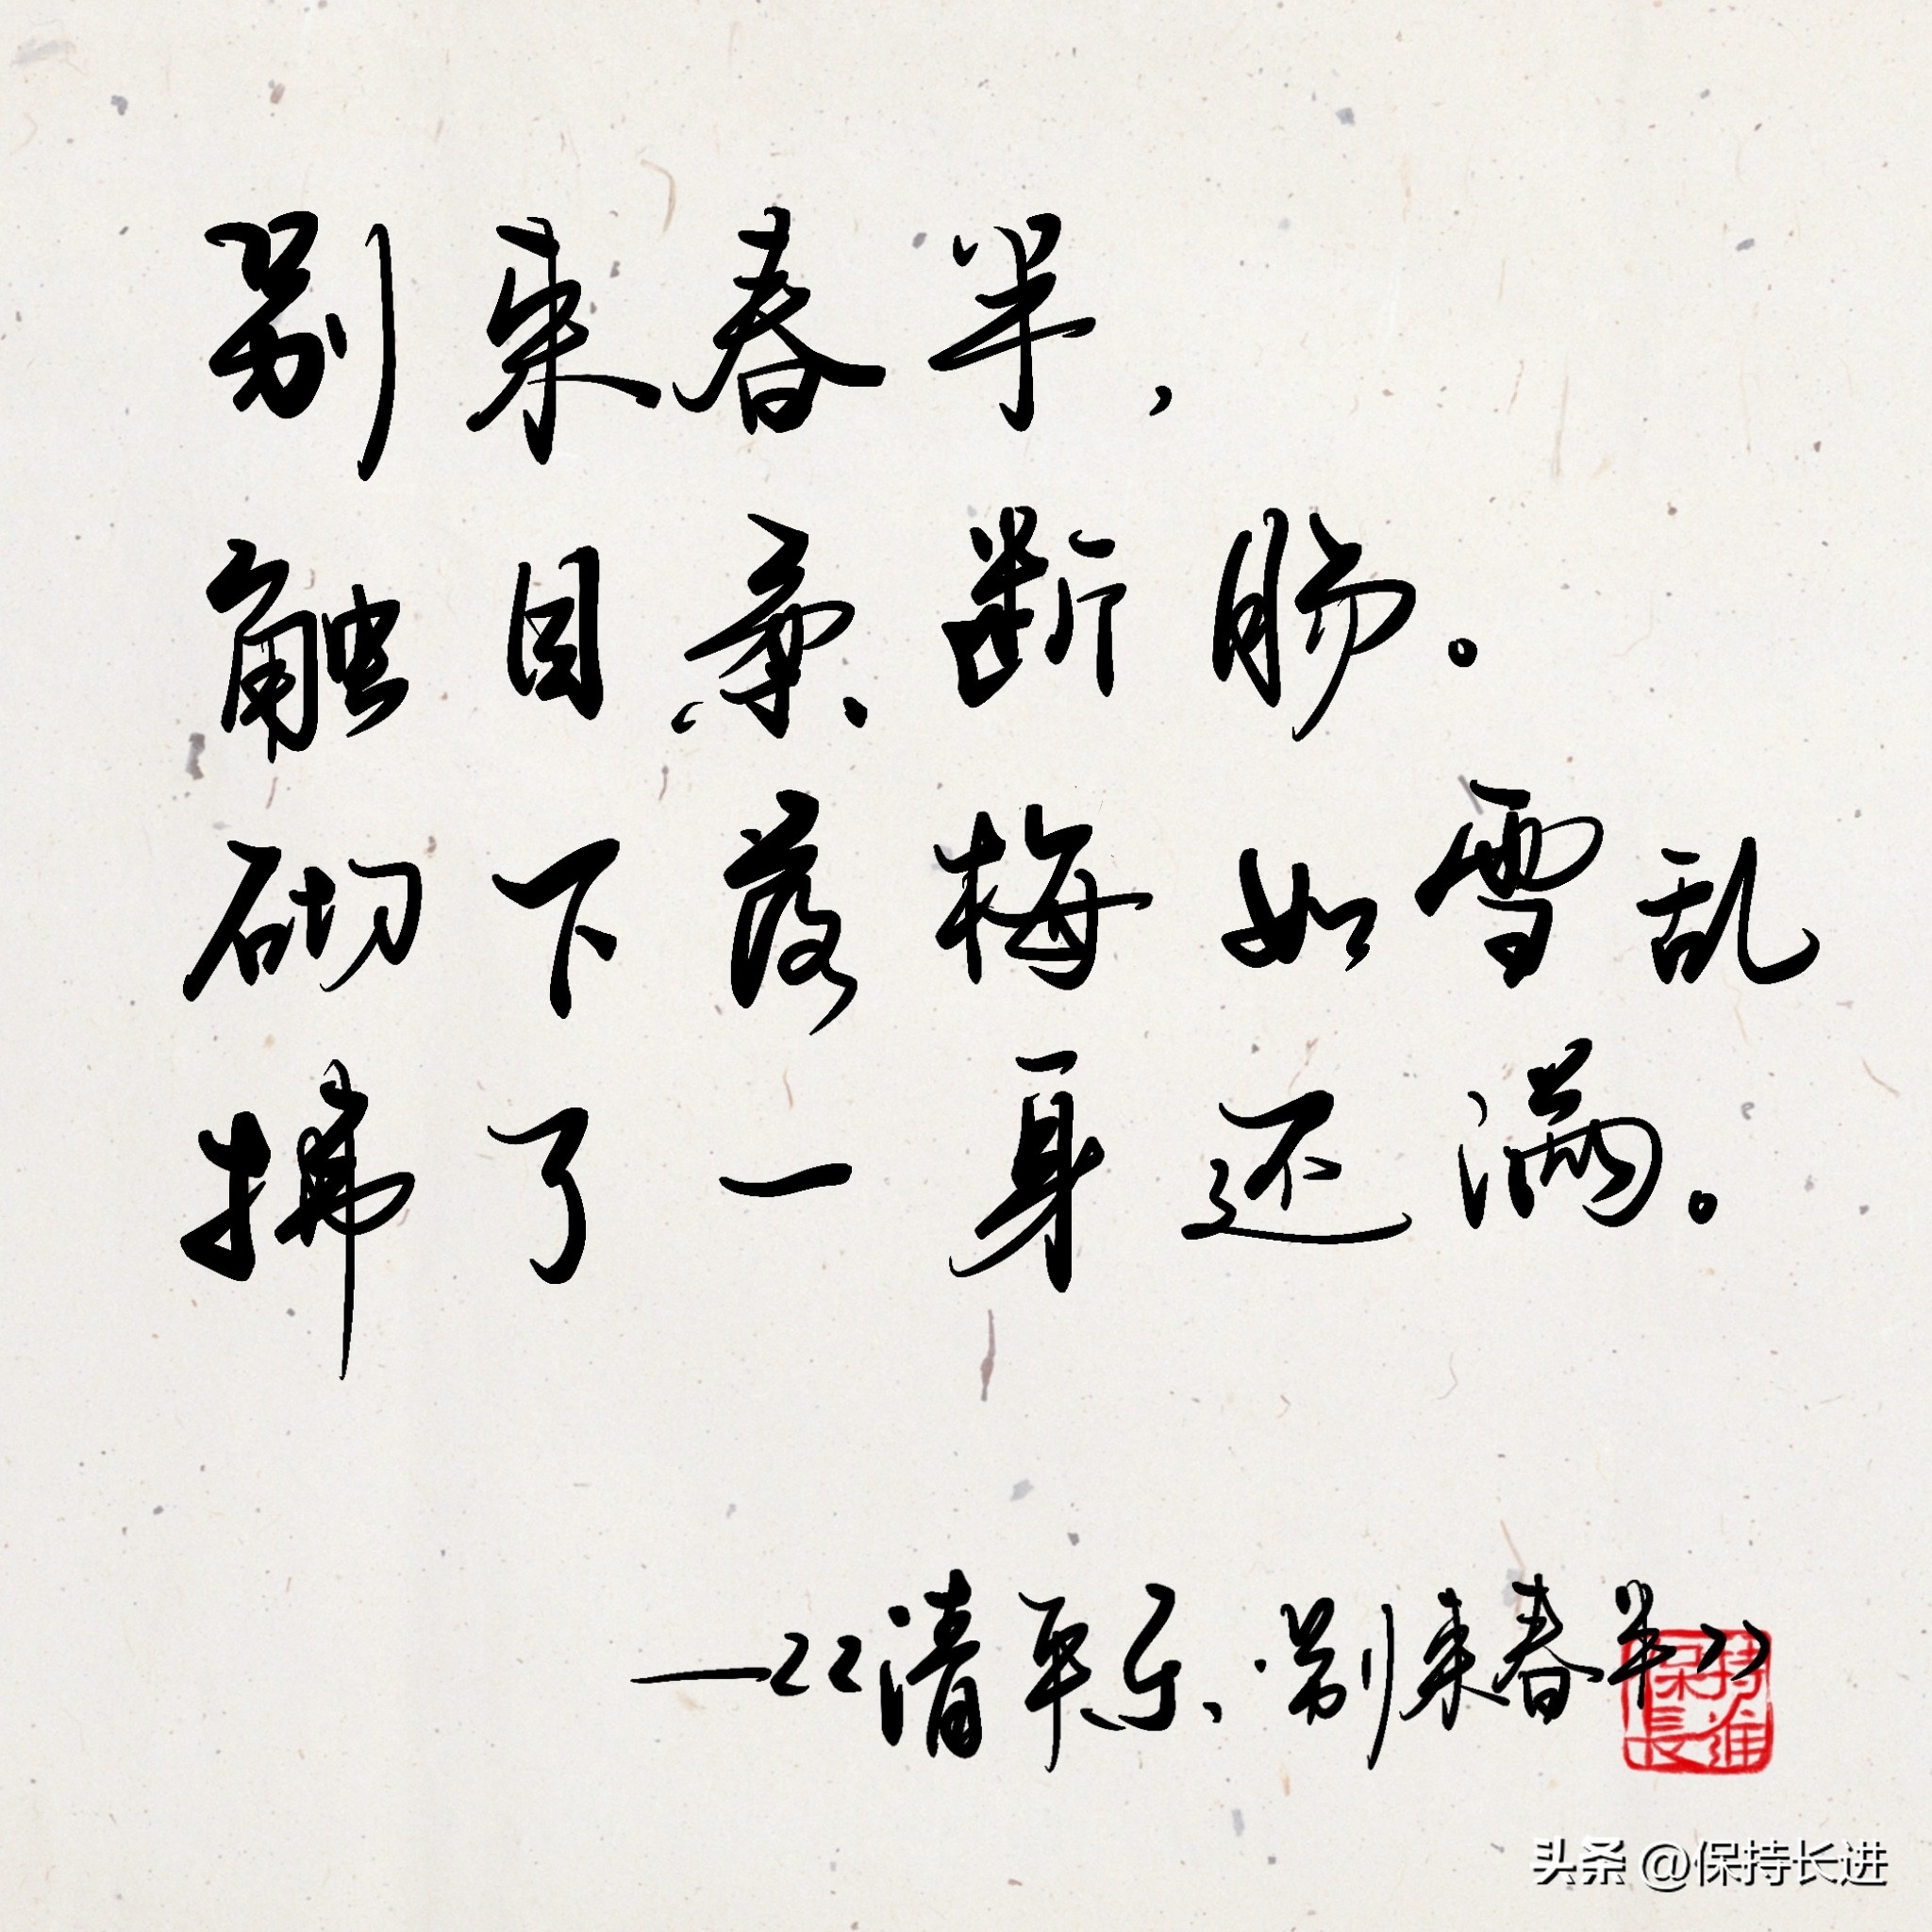 别来春半,
触目柔断肠。
砌下落梅如雪乱
拂了一身还满。
—<<清平乐·别来春半>>
保持
長進
头条 @保持长进